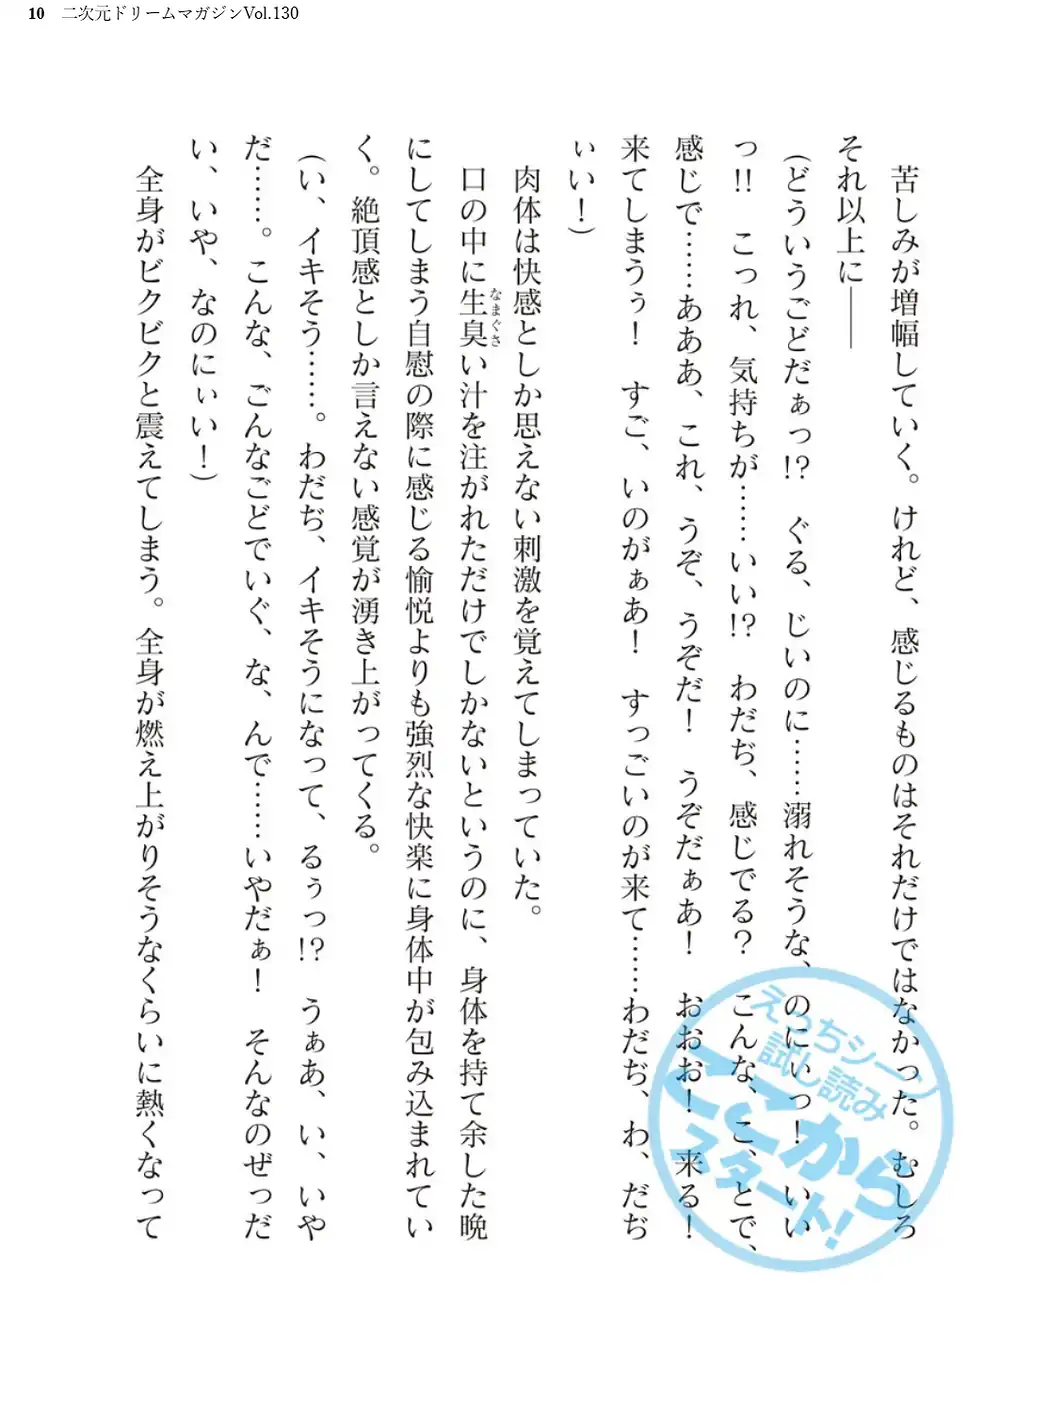 10 二次元ドリームマガジンVol.130
　苦しみが増幅していく。けれど、感じるものはそれだけではなかった。むしろ
それ以上に――
（どういうごどだぁっ!?　ぐる、じいのに……溺れそうな、のにいっ！　いい
っ!!　こっれ、気持ちが……いい!?　わだぢ、感じでる？　こんな、こ、とで、
感じで……あああ、これ、うぞ、うぞだ！　うぞだぁあ！　おおお！　来る！
来てしまうぅ！　すご、いのがぁあ！　すっごいのが来て……わだぢ、わ、だぢ
ぃい！）
　肉体は快感としか思えない刺激を覚えてしまっていた。
　口の中に生臭い汁を注がれただけでしかないというのに、身体を持て余した晩
なまぐさ
にしてしまう自慰の際に感じる愉悦よりも強烈な快楽に身体中が包み込まれてい
く。絶頂感としか言えない感覚が湧き上がってくる。
（い、イキそう……。わだぢ、イキそうになって、るぅっ!?　うぁあ、い、いや
だ……。こんな、ごんなごどでいぐ、な、んで……いやだぁ！　そんなのぜっだ
い、いや、なのにぃい！）
　全身がビクビクと震えてしまう。全身が燃え上がりそうなくらいに熱くなって
えっちシーン
試し読み
ここから
スタート!